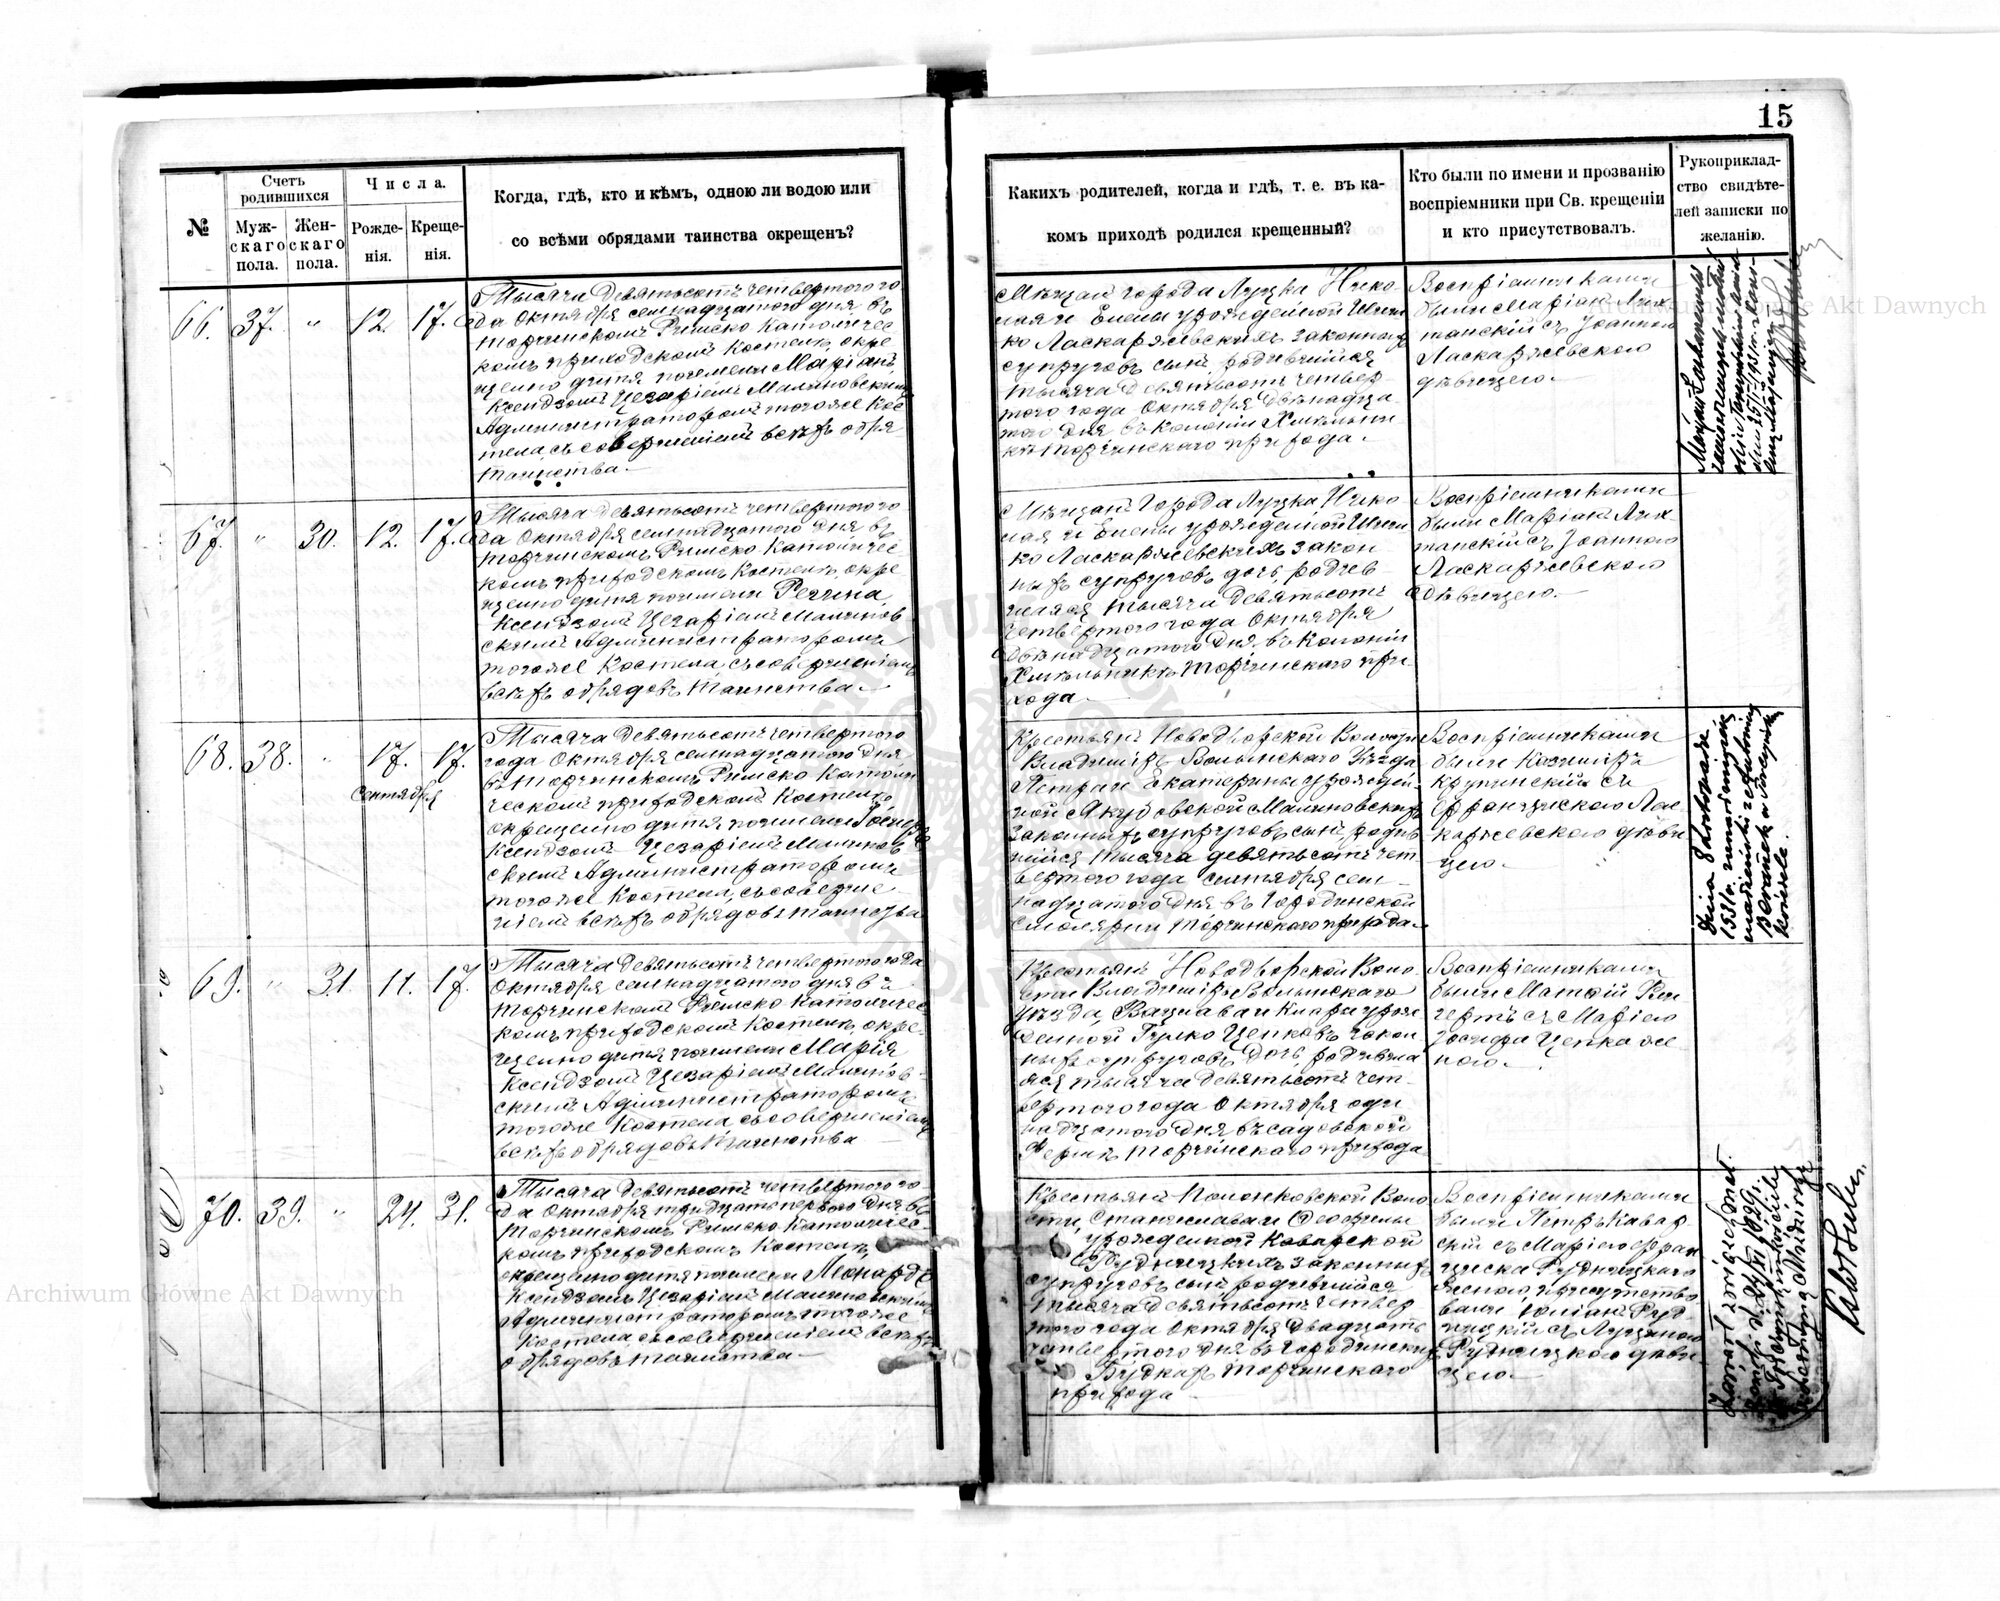 15
№
Счетъ
родившихся
Муж-
скаго
пола.
Жен-
скаго
пола.
Числа.
Рожде-
нія.
Креще-
нія.
Когда, гдѣ, кто и кѣмъ, одною ли водою или
со всѣми обрядами таинства окрещенъ?
Какихъ родителей, когда и гдѣ, т. е. въ ка-
комъ приходѣ родился крещенный?
Кто были по имени и прозванію
воспріемники при Св. крещеніи
и кто присутствовалъ.
Рукоприклад-
ство свидѣте-
лей записки по
желанію.
66. 37. „ 12. 17.
Тысяча девятьсотъ четвертого го-
да Октября семнадцатого дня въ
Торчинскомъ Римско Католичес-
комъ приходскомъ Костелѣ, окре-
щено дитя по имени Маріанъ,
Ксендзомъ Цезаріемъ Малиновскимъ
Администраторомъ тогоже Кос-
тела, съ совершеніемъ всѣхъ обря-
таинства.
Мѣщанъ города Луцка Нико-
лая и Елены урожденной
ко Ласкаржевскихъ законныхъ
супруговъ сынъ, родившійся
тысяча девятьсотъ четвер-
того года Октября двѣнадца-
того дня въ Колоніи Хмѣльни-
кѣ Торчинскаго прихода.
Воспріемниками
были Маріанъ Лих-
танскій съ Іоанною
Ласкаржевскою
дѣвицею.
67. „ 30. 12. 17.
Тысяча девятьсотъ четвертого го-
да Октября семнадцатого дня въ
Торчинскомъ Римско Католичес-
комъ приходскомъ Костелѣ, окре-
щено дитя по имени Регина,
Ксендзомъ Цезаріемъ Малинов-
скимъ Администраторомъ
тогоже Костела, съ совершеніемъ
всѣхъ обрядовъ таинства.
Мѣщанъ города Луцка Нико-
лая и Елены урожденной
ко Ласкаржевскихъ закон
ныхъ супруговъ дочь, родив-
шаяся тысяча девятьсотъ
четвертого года Октября
двѣнадцатого дня въ Колоніи
Хмѣльникѣ Торчинскаго при-
хода.
Воспріемниками
были Маріанъ Лих-
танскій съ Іоанною
Ласкаржевскою
дѣвицею.
68. 38. „ 17. 17.
сентября
Тысяча девятьсотъ четвертого
года Октября семнадцатого дня
въ Торчинскомъ Римско Католи-
ческомъ приходскомъ Костелѣ,
окрещено дитя по имени
Ксендзомъ Цезаріемъ Малинов
скимъ Администраторомъ
тогоже Костела, съ соверше-
ніемъ всѣхъ обрядовъ таинства
Крестьянъ Новодворской Волости
Владиміръ Волынскаго Уѣзда
Петра и Екатерины урожден-
ной Якубовской Малиновскихъ
законныхъ супруговъ сынъ, родив
шійся тысяча девятьсотъ чет-
вертого года сентября сем-
надцатого дня въ Городинской
смолярни Торчинскаго прихода.
Воспріемниками
были Казиміръ
Крупинскій съ
Францискою Лас-
каржевскою дѣви
цею.
69. „ 31. 11. 17.
Тысяча девятьсотъ четвертого года
Октября семнадцатого дня въ
Торчинскомъ Римско Католичес-
комъ приходскомъ Костелѣ, окре-
щено дитя по имени Марія
Ксендзомъ Цезаріемъ Малинов-
скимъ Администраторомъ
тогоже Костела, съ совершеніемъ
всѣхъ обрядовъ таинства
Крестьянъ Новодворской Воло-
сти Владиміръ Волынскаго
Уѣзда, Вацлава и Клары урож
денной Гулко Цепковъ закон
ныхъ супруговъ дочь, родивша
яся тысяча девятьсотъ чет-
вертого года Октября оди
надцатого дня въ садовской
Фермѣ Торчинскаго прихода
Воспріемниками
были Матѳій
съ Маріею
Іосифа Цепка же-
ною.
70. 39. „ 24. 31.
Тысяча девятьсотъ четвертого го-
да Октября тридцать перваго дня въ
Торчинскомъ Римско Католичес-
комъ приходскомъ Костелѣ,
окрещено дитя по имени Леонардъ
Ксендзомъ Цезаріемъ Малиновскимъ
Администраторомъ тогоже
Костела, съ совершеніемъ всѣхъ
обрядовъ таинства.
Крестьянъ Полонковской Воло
сти, Станислава и Ѳеофилы
урожденной Каварской
Рудницкихъ законныхъ
супруговъ сынъ родившійся
тысяча девятьсотъ четвер-
того года Октября двадцать
четвертого дня въ Городинскихъ
Будкахъ Торчинскаго
прихода
Воспріемниками
были Петръ Кавар-
скій съ Маріею Фран
циска Рудницкаго
женою, присутство
вали Юліанъ Руд-
ницкій съ Луціею
Рудницкою дѣви
цею.
Dnia 8 listopada
1931 r.
Archiwum Główne Akt Dawnych
Archiwum Główne Akt Dawnych